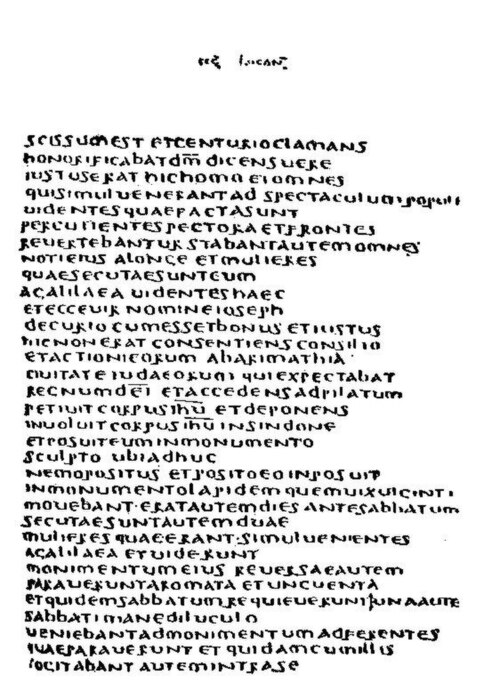 sec lucan̄
scissum est et centurio clamans
honorificabat dm̄ dicens uere
iustus erat hic homo et omnes
qui simul uenerant ad spectaculum populi
uidentes quae facta sunt
percutientes pectora et frontes
reuertebantur stabant autem omnes
noti eius a longe et mulieres
quae secutae sunt eum
a galilaea uidentes haec
et ecce uir nomine ioseph
decurio cum esset bonus et iustus
hic non erat consentiens consilio
et actioni eorum ab arimathia
ciuitate iudaeorum qui expectabat
regnum dei et accedens ad pilatum
petiuit corpus ihu et deponens
inuoluit corpus ihu in sindone
et posuit eum in monumento
sculpto ubi adhuc
nemo positus et posito eo inposuit
in monumento lapidem quem uix uiginti
mouebant · erat autem dies ante sabbatum
secutae sunt autem duae
mulieres quae erant · simul uenientes
a galilaea et uiderunt
monimentum eius reuersae autem
parauerunt aromata et unguenta
et quidem sabbatum requieuerunt una aute
sabbati mane diluculo
ueniebant ad monimentum adferentes
quae parauerunt et quidam cum illis
cogitabant autem intra se